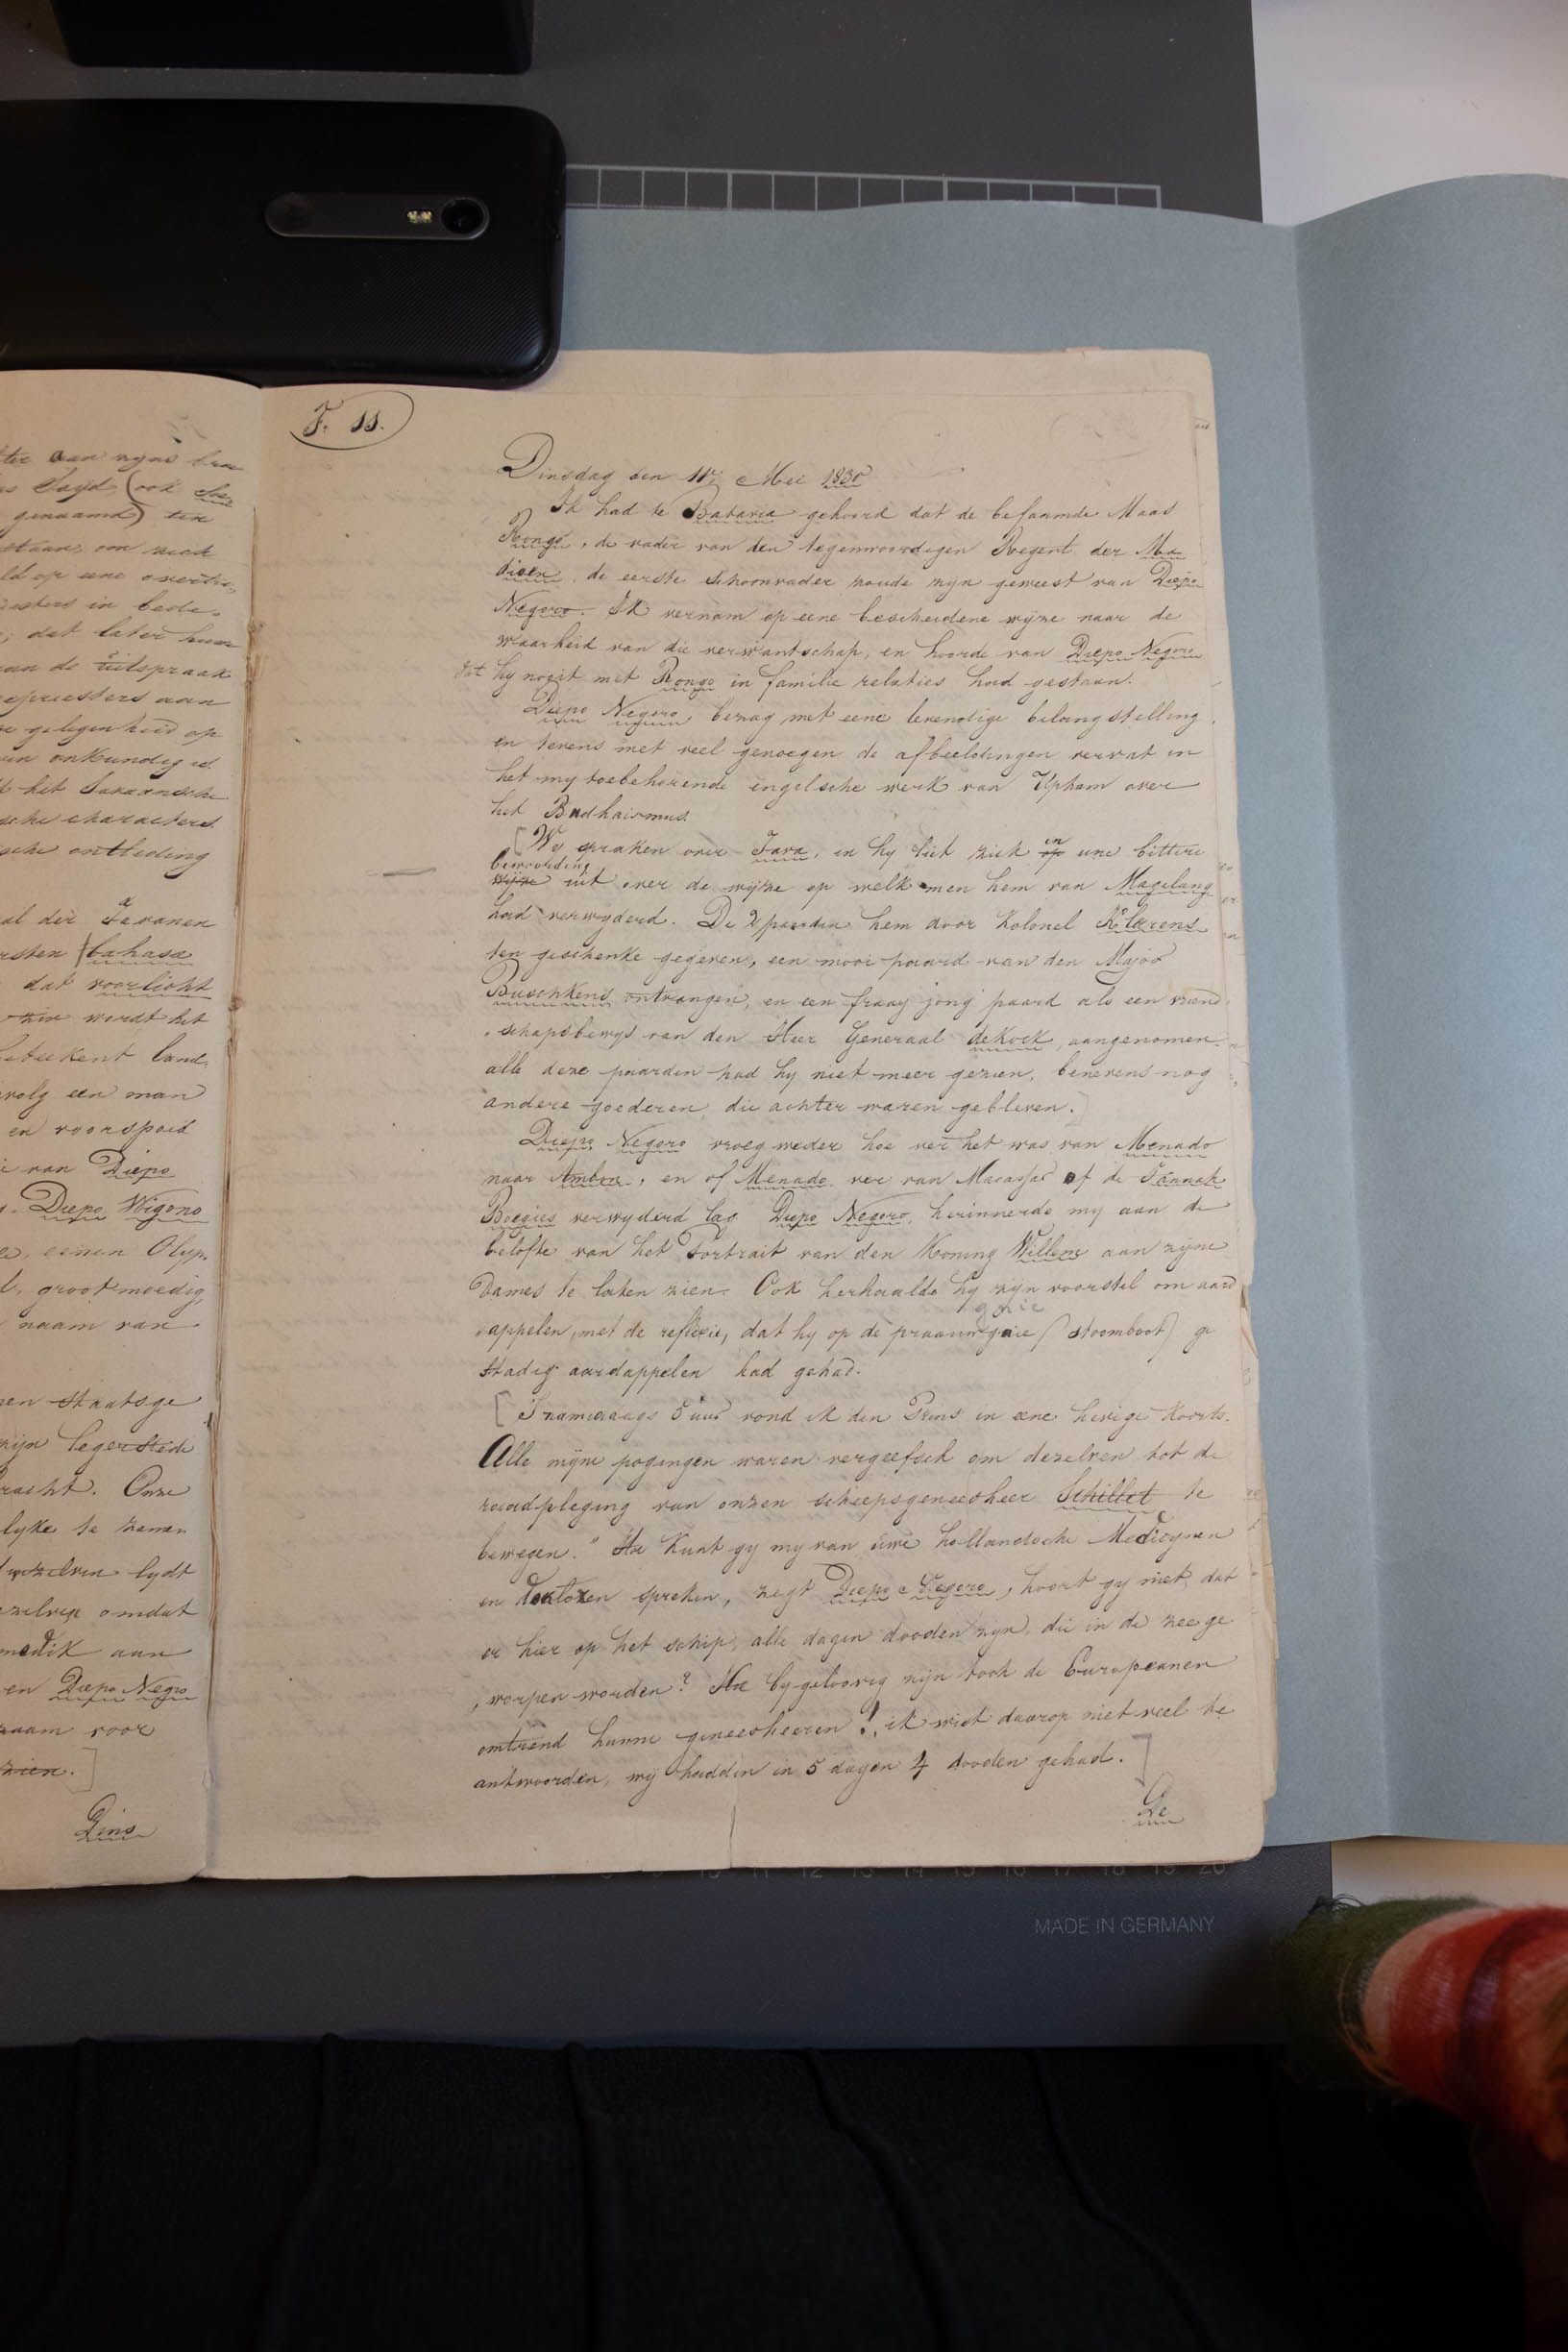 ter aan zyne
Sayd, (ook
genaamd) ten
staan, om zich
ld op eene
iesters in bede.
; dat later hun
aan de uitspraak
epriesters aan
gelegenheid op
van onkundig is.
het Javaansche
sche characters.
sche ontleding
al der Javanen
rsten (bahasa
dat voorlicht
wordt het
beteekent land.
volg een man
en voorspoed
van Diepo
Diepo Wigono
eenen Olyp.
grootmoedig,
naam van
nen staatsge
zijn legerstede
racht. Onze
lyke te
lydt
omdat
medik aan
en Diepo Negro
naam voor
zien.]
Dins
F. 11.
Dinsdag den 11e Mei 1830
Ik had te Batavia gehoord dat de befaamde Maas
Rongo, de vader van den tegenwoordigen Regent der Ma
dioen, de eerste Schoonvader zoude zijn geweest van Diepo
Negoro. Ik vernam op eene bescheidene wyze naar de
waarheid van die verwantschap, en hoorde van Diepo Negoro
dat hy nooit met Rongo in familie relaties had gestaan.
Diepo Negoro bezag met eene levendige belangstelling
en tevens met veel genoegen de afbeeldingen vervat in
het my toebehorende engelsche werk van Upham over
het Budhaismus
[Wy spraken over Java, en hy liet zich op in eene bittere
wijze bewoording uit over de wijze op welk men hem van Magelang
had verwyderd. De 2 paarden hem door Kolonel Klerens
ten geschenke gegeven, een mooi paard van den Majoor
Buschkens ontvangen, en een fraay jong paard als een vriend
schapsbewys van den Heer Generaal de Kock, aangenomen
alle deze paarden had hy niet meer gezien, benevens nog
andere goederen, die achter waren gebleven.]
Diepo Negoro vroeg weder hoe ver het was van Menado
naar Ambon, en of Menado ver van Macassar of de Tannah
Boegies verwyderd lag. Diepo Negoro, herinnerde my aan de
belofte van het Portrait van den Koning Willem aan zyne
Dames te laten zien. Ook herhaalde hy zijn voorstel om aard
appelen, met de reflexie, dat hy op de praauw gnie gnie (stoomboot) ge
stadig aardappelen had gehad.
[S'namiddags 5 uur vond ik den Prins in eene hevige Koorts.
Alle mijne pogingen waren vergeefsch om dezelven tot de
raadpleging van onzen scheepsgeneesheer Schillet te
bewegen. "Hoe Kunt gy my van uwe hollandsche Medicynen
en doktoren spreken, zegt Diepo Negoro, hoort gy niet, dat
er hier op het schip, alle dagen dooden zijn, die in de zee ge
worpen worden? Hoe by-geloovig zijn toch de Europeanen
omtrend hunne geneesheeren!, ik wist daarop niet veel te
antwoorden, wij hadden in 5 dagen 4 dooden gehad.]
De
MADE IN GERMANY